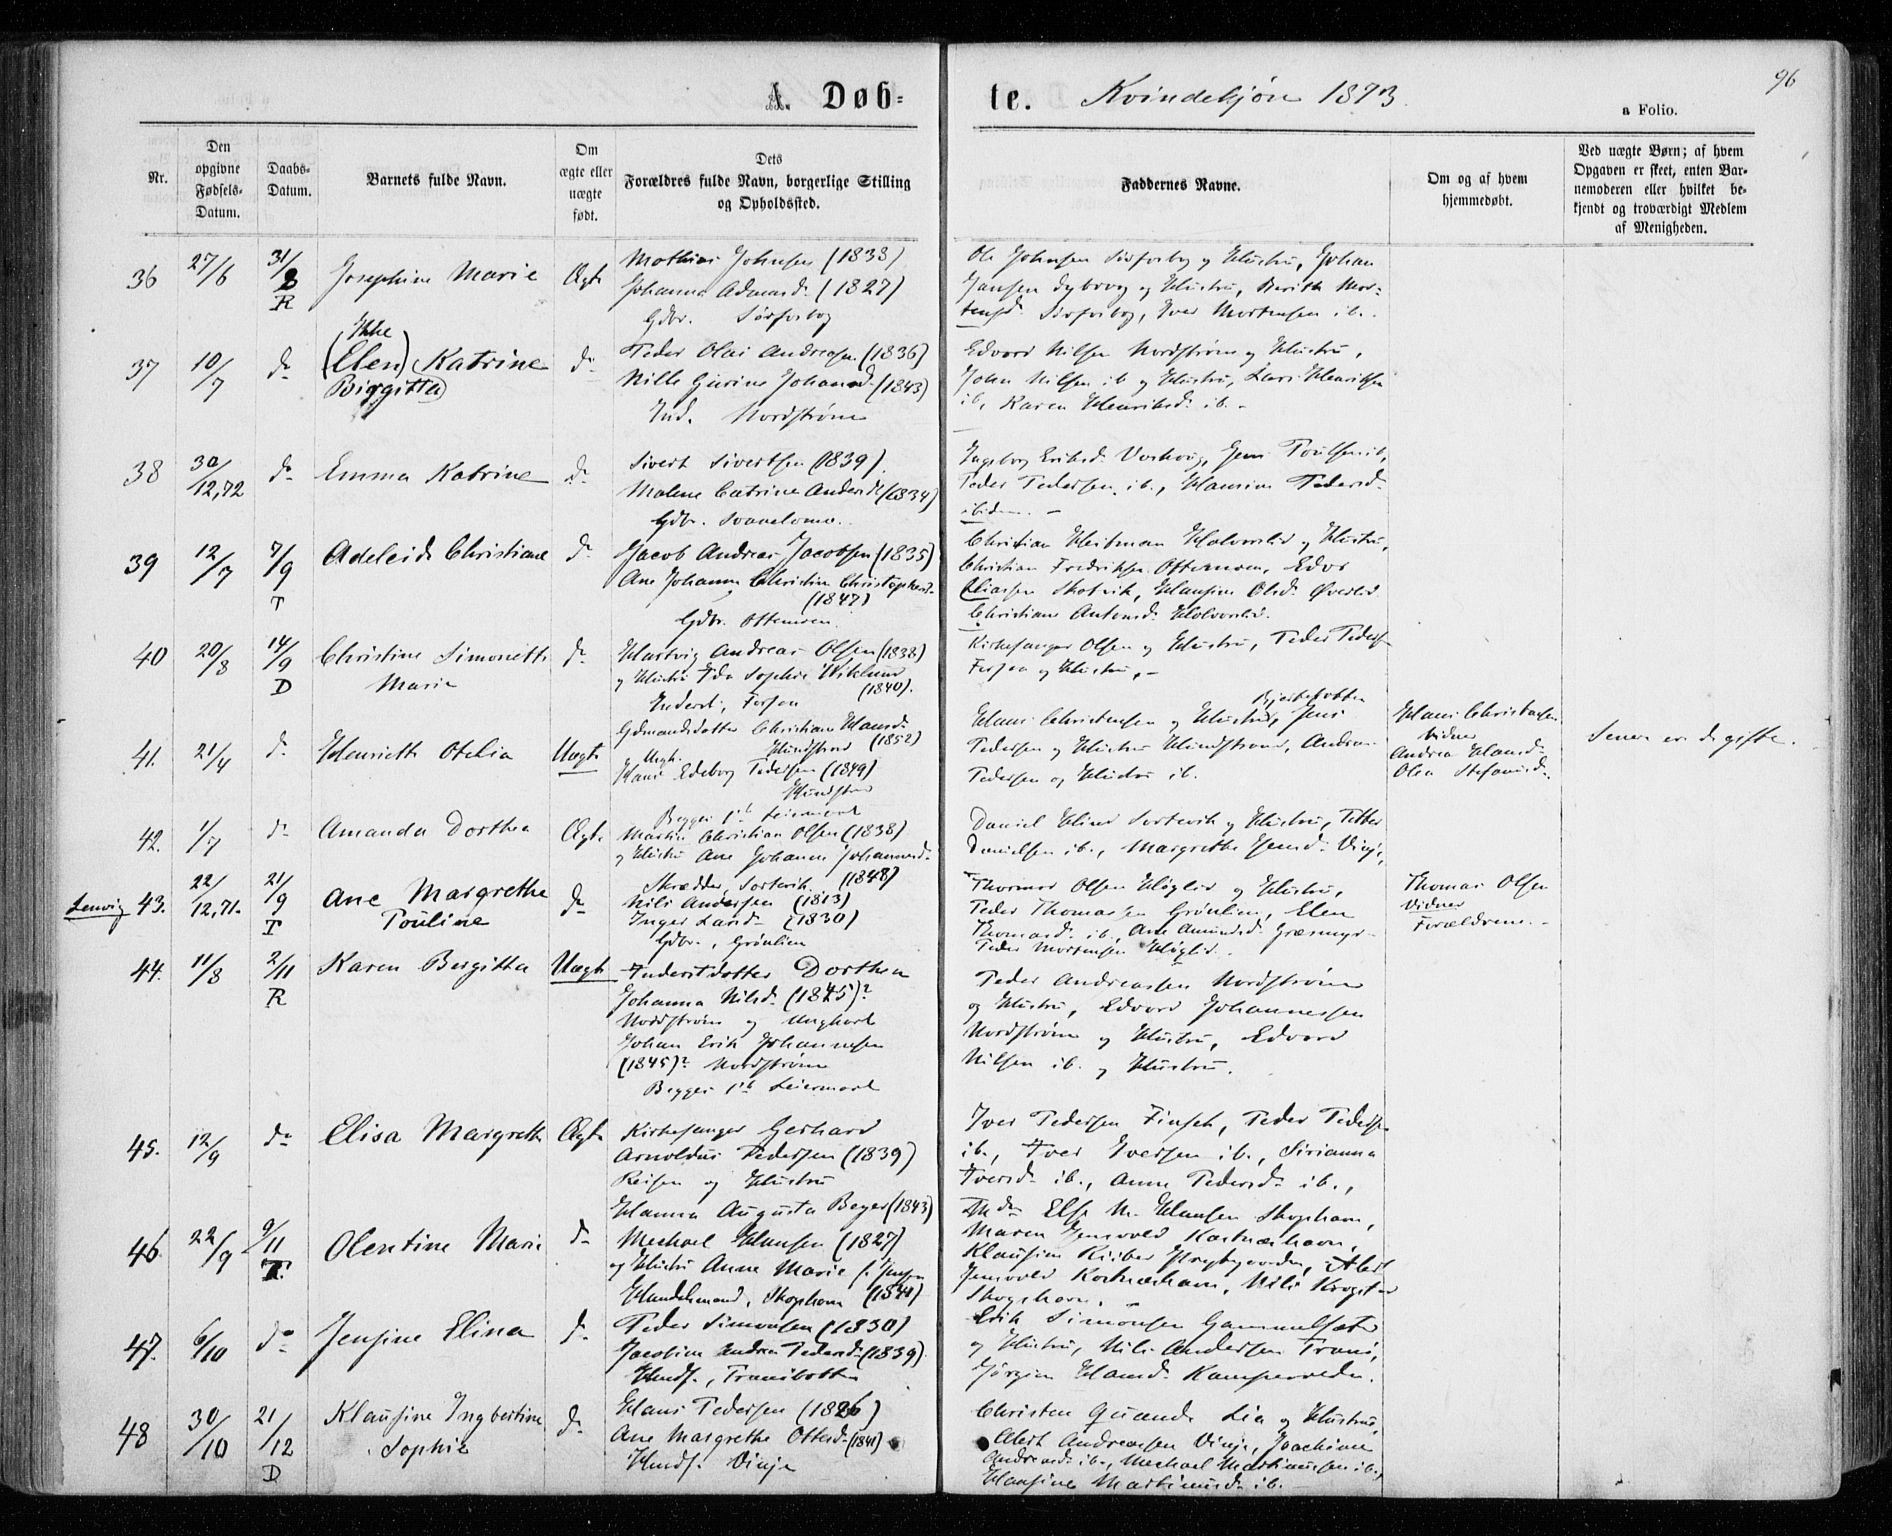 96
A. Døb= te. Kvindekjøn 1873.
a Folio.
Nr.
Den opgivne Fødsels-Datum.
Daabs-Datum.
Barnets fulde Navn.
Om ægte eller uægte født.
Dets Forældres fulde Navn, borgerlige Stilling og Opholdssted.
Faddernes Navne.
Om og af hvem hjemmedøbt.
Ved uægte Børn; af hvem Opgaven er skeet, enten Barnemoderen eller hvilket bekjendt og troværdigt Medlem af Menigheden.
36 27/6 31/8 R Josephine Marie Ægt
Mathias Johnsen (1833)
Johanna (1827)
Gdbr. Sørforbog
Ole Johnsen Sørforbog og Hustru, Johan
Jansen Dybvog og Hustru, Berith Mor-
tensd. Sørforbog, Iver Mortensen ib.
37 10/7 do (Ikke Elen) Katrine do
Birgitta)
Peder Olai Andreasen (1836)
Nille Gurine Johansd. (1843)
Ind. Nordstrøm
Edvard Nilsen Nordstrøm og Hustru,
John Nilsen ib og Hustru, Lars Henriksen
ib, Karen Henriksd. ib. -
38 30/12,72 do Emma Katrine do
Sivert Sivertsen (1839).
Malene Catrine Andersd (1834)
Gdbr.
Ingeborg Eriksd. Jens Poulsen ib,
Peder Pedersen ib., Hansine Pedersd.
ibidem. -
39 12/7 7/9 T Adeleide Christiane do
Jacob Andreas Jacobsen (1835)
Ane Johanna Christine Christophersd.
(1847)
Gdbr.
Christian Heitman og Hustru,
Christian Fredriksen
Eliassen Hansine Olsd.
Christiane Antonsd.
40 20/8 14/9 D Christine Simonette do
Marie
Hartvig Andreas Olsen (1838)
og Hustru Ida Sophie Wiklund
(1840).
Inderst,
Kirkesanger Olsen og Hustru, Peder Peders
og Hustru, -
41. 21/4 do Henriette Otelia Uægt
Gdmandsdatter Christiane Hansd.
Hundstrand (1852)
og Ungk.
Hans Edeborg Pedersen (1849)
Hundstrand
Begges 1ste Leiermaal
Hans Christensen og Hustru, Jens
Pedersen og Hustru Hundstrand, Andreas
Pedersen og Hustru ib.
Hans Christensen
Vidner
Andrea Hansd.
Olea Stefansd.
Senere er de gifte.
42. 1/7 do Amanda Dorthea Ægt
Martin Christian Olsen (1838)
og Hustru Ane Johanne Johannesd.
Skrædder, Sortevik. (1848)
Daniel Sortevik og Hustru, Petter
Danielsen ib., Margrethe Jensd. Vinje,
Lenvig 43. 22/12,71. 21/9 T Ane Margrethe do
Pouline
Nils Andersen (1813)
Inger Larsd. (1830)
Gdbr., Grønlien
Thormod Olsen Høglid og Hustru,
Peder Thomassen Grønlien, Elen
Thomasd. ib, Ane Amundsd. Græsmyr
Peder Mortensen Høglid.
Thomas Olsen
Vidner
Forældrene. -
44. 11/8 2/11 R Karen Bergitta Uægt
Inderstdatter Dorthea
Johanna Nilsd. (1845)?
Nordstrøm og Ungkarl
Johan Erik Johannesen
(1845)? Nordstrøm
Begges 1ste Leiermaal
Peder Andreassen Nordstrøm
og Hustru, Edvard Johannessen
Nordstrøm og Hustru, Edvard
Nilsen ib. og Hustru.
45. 12/9 do Elisa Margrethe Ægt
Kirkesanger Gerhard
Arnoldus Pedersen (1839)
Reisen og Hustru
Hanna Augusta Beyer (1843)
Iver Pedersen Finset, Peder Pedersen
ib., Iver Iversen ib., Sirianna
Iversd. ib., Anne Pedersd. ib.,
46. 22/9 9/11 T. Olentine Marie do
Mechael Hansen (1827)
og Hustru Anne Marie f. Jensen
Handelsmand, Skoghavn
Else M. Hansen Skoghavn,
Maren Jensvold Kastnæshavn,
Klausine Albert
Jensvold Kastnæshavn, Nils
Skoghavn.
47. 6/10 do Jensine Elina do
Peder Simonsen (1830)
Jacobine Andrea Pedersd (1839).
Hmdf., Tranebotten
Erik Simonsen Gammelsæter
og Hustru, Nils Andersen
Jørgine Hansd.
48 30/10 21/12 D Klausine Ingbertine do
Sophie
Hans Pedersen (1826)
Ane Margrethe Ottersd. (1841)
Hmdf. Vinje
Christen Quande Lia og Hustru,
Albert Andreassen Vinje, Joachime
Andreasd. ib., Mechael Martinussen ib.,
Hansine Martinusd. ib. -